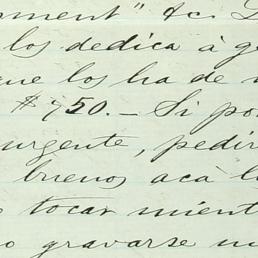 ment" &c.
los dedica à ge
que los ha de
$ 750. — Si po
urgente, pedir
buenos acá l
tocar mient
o gravarse